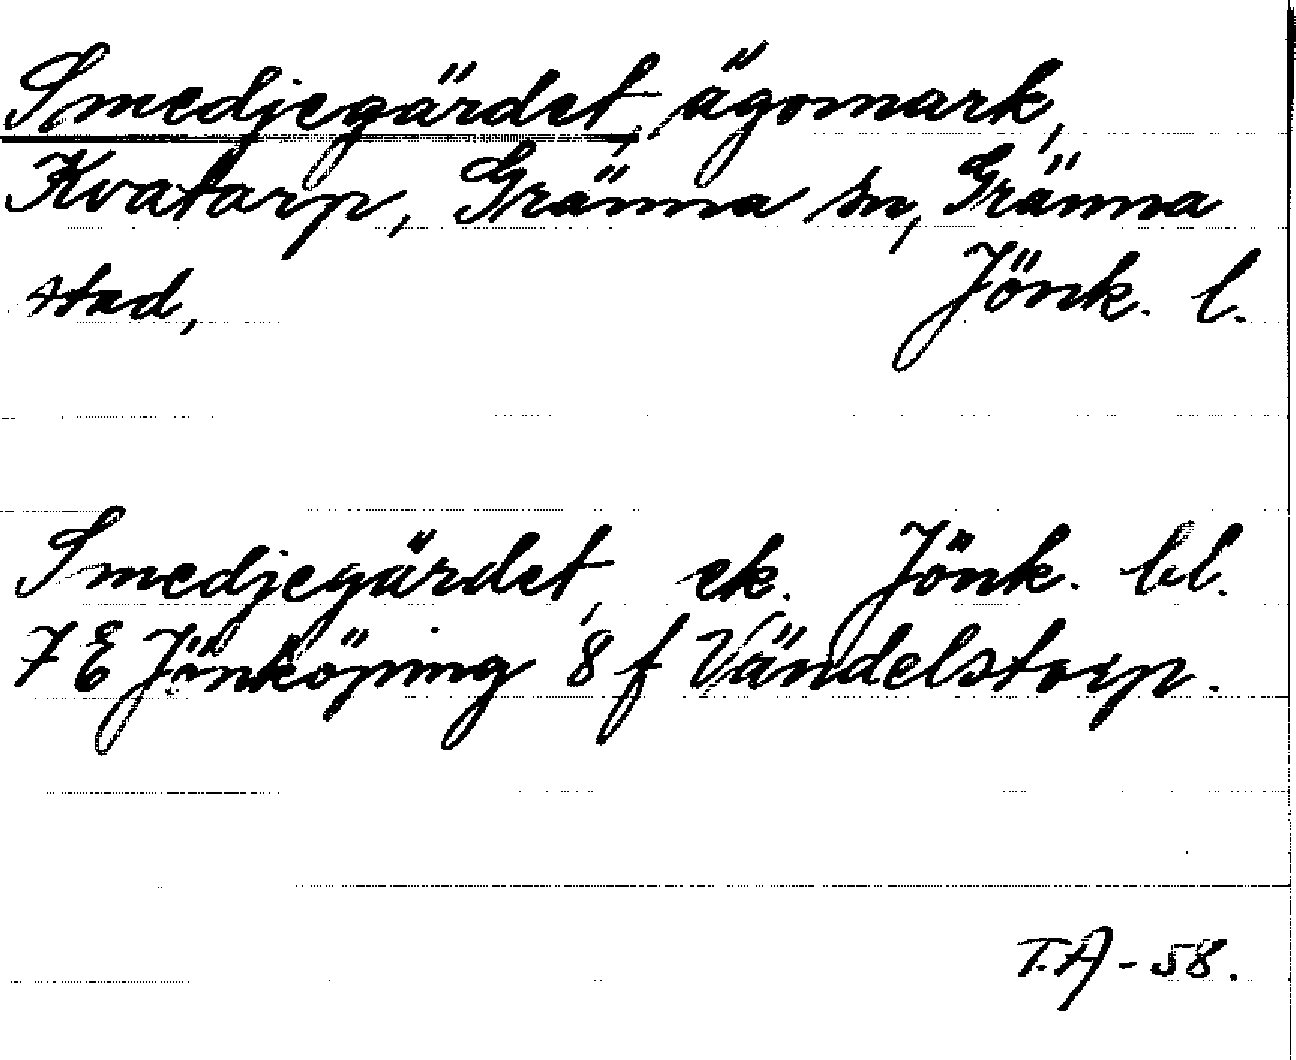 Smedjegärdet, ägomark,
Kvatarp, Gränna sn, Gränna
stad, Jönk. l.
Smedjegärdet, ek. Jönk. bl.
7 E Jönköping 8 f Vändelstorp.
T.A - 58.